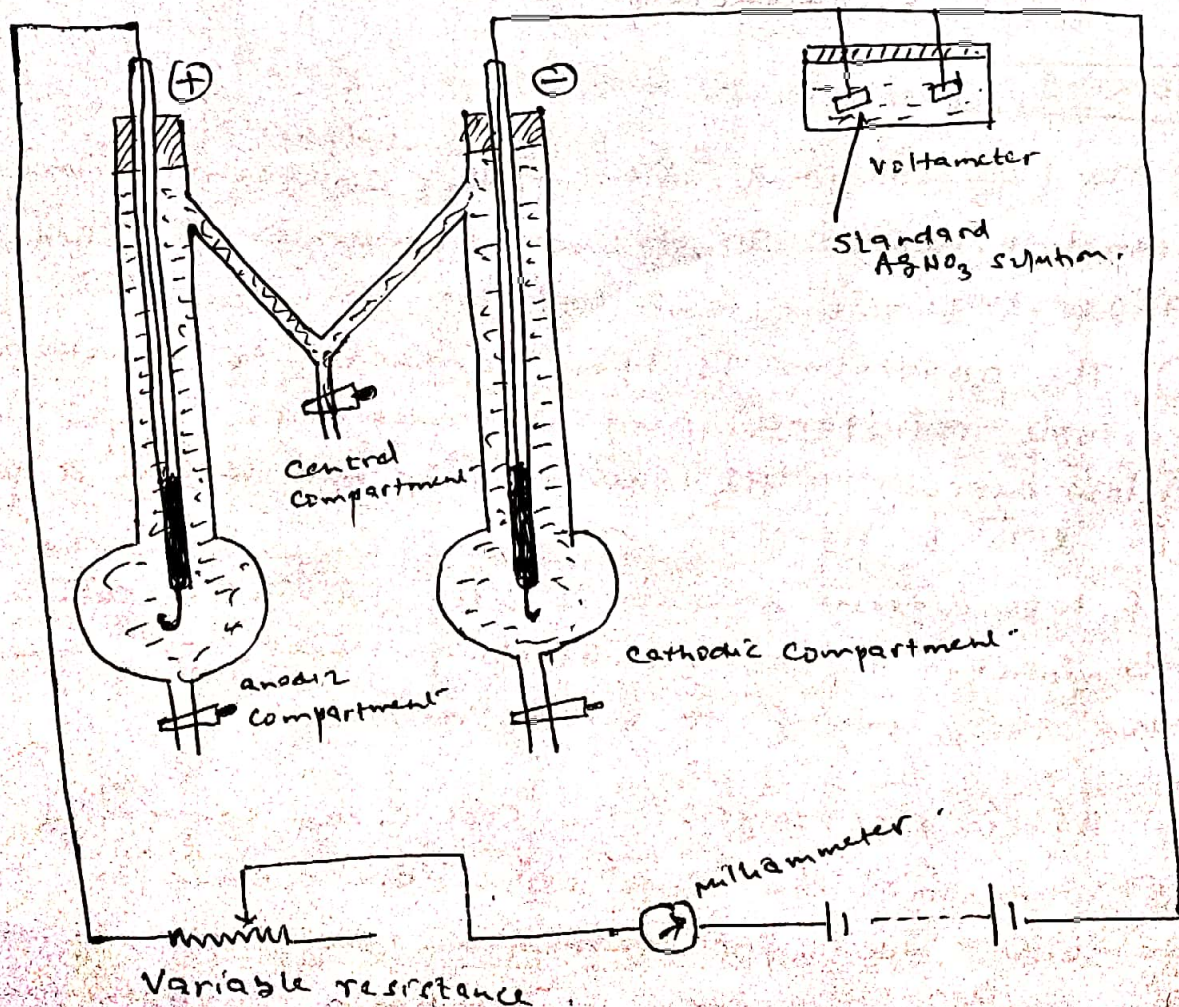 +
−
Voltameter
Standard
AgNO3 solution.
Central
compartment
cathodic compartment
anodic
compartment
milliammeter
Variable resistance